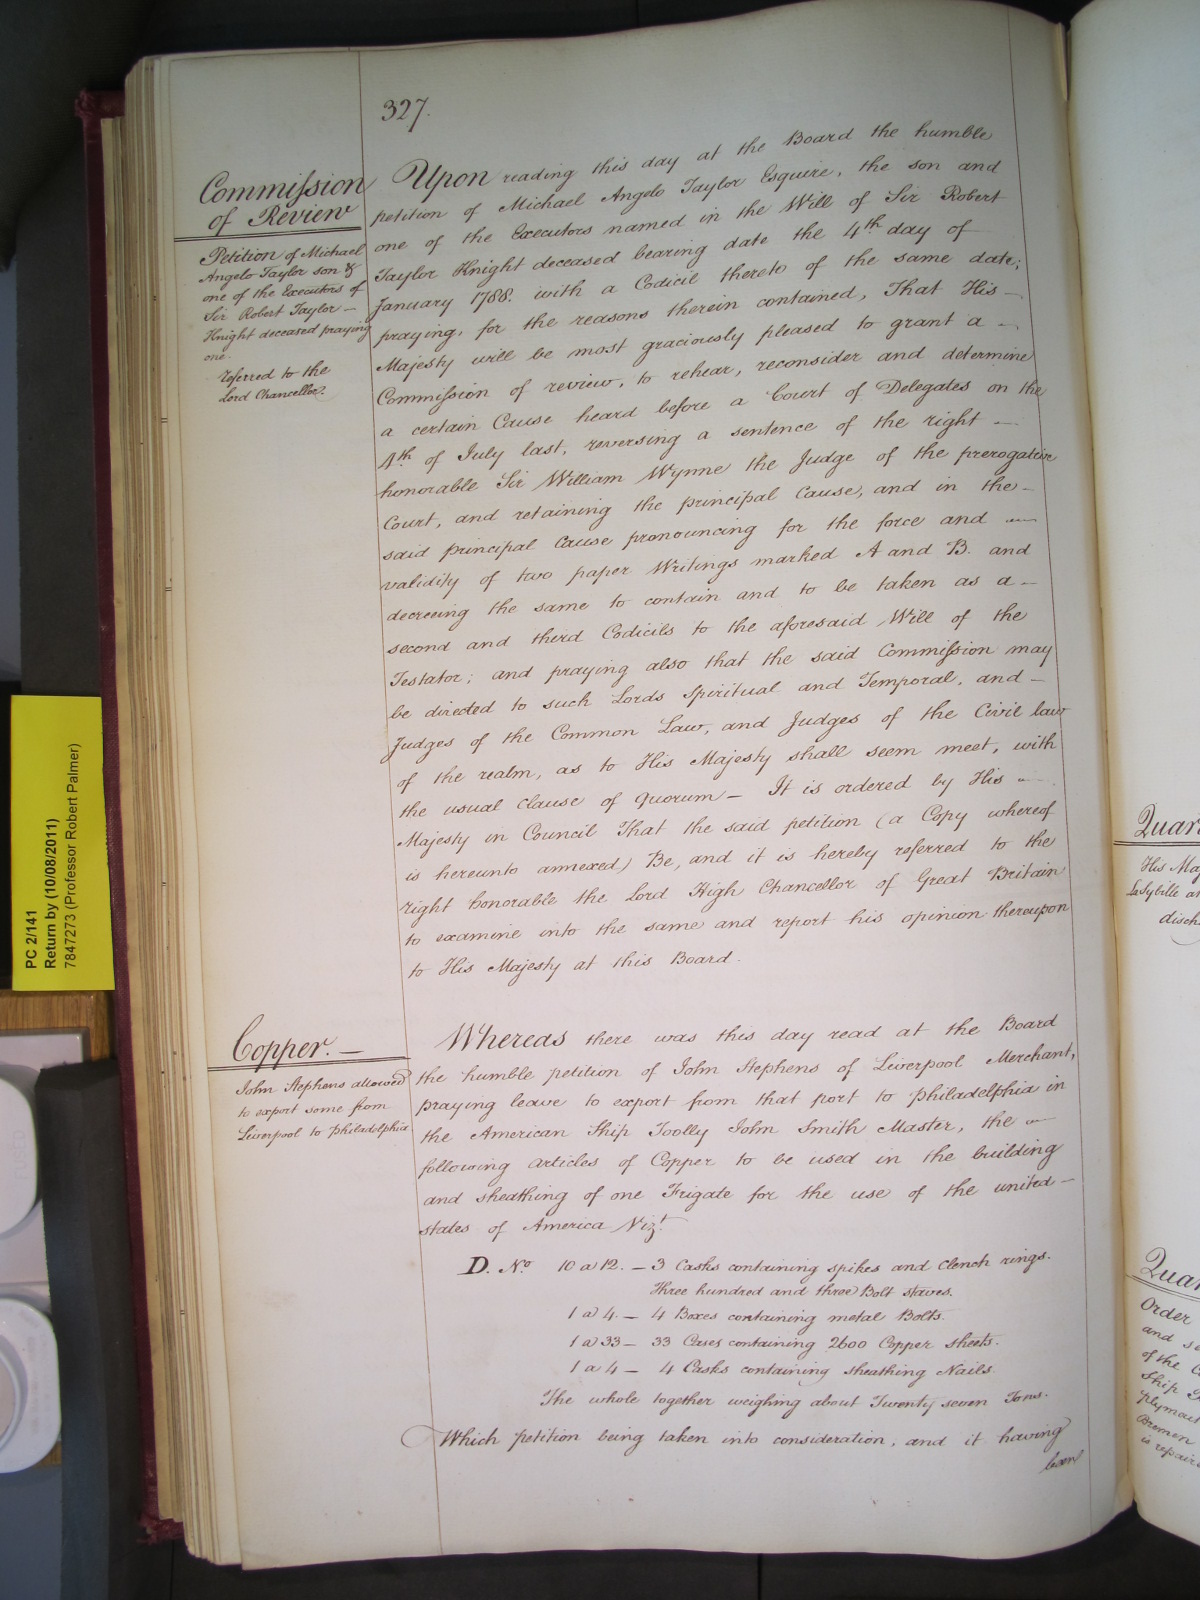 327.
Commission
of Review
Petition of Michael
Angelo Taylor son &
one of the Executors of
Sir Robert Taylor —
Knight deceased praying
one.
referred to the
Lord Chancellor.
Upon reading this day at the Board the humble
petition of Michael Angelo Taylor Esquire, the son and
one of the Executors named in the Will of Sir Robert
Taylor Knight deceased bearing date the 4th day of
January 1788. with a Codicil thereto of the same date;
praying, for the reasons therein contained, That His —
Majesty will be most graciously pleased to grant a —
Commission of review, to rehear, reconsider and determine
a certain Cause heard before a Court of Delegates on the
4th of July last, reversing a sentence of the right —
honorable Sir William Wynne the Judge of the prerogative
Court, and retaining the principal Cause, and in the —
said principal Cause pronouncing for the force and —
validity of two paper Writings marked A and B. and
decreeing the same to contain and to be taken as a —
second and third Codicils to the aforesaid Will of the
Testator; and praying also that the said Commission may
be directed to such Lords Spiritual and Temporal, and —
Judges of the Common Law, and Judges of the Civil law
of the realm, as to His Majesty shall seem meet, with
the usual clause of Quorum — It is ordered by His —
Majesty in Council That the said petition (a Copy whereof
is hereunto annexed) Be, and it is hereby referred to the
right honorable the Lord High Chancellor of Great Britain
to examine into the same and report his opinion thereupon
to His Majesty at this Board.
Copper. —
John Stephens allowed
to export some from
Liverpool to Philadelphia
Whereas there was this day read at the Board
the humble petition of John Stephens of Liverpool Merchant,
praying leave to export from that port to Philadelphia in
the American Ship Toolly John Smith Master, the —
following articles of Copper to be used in the building
and sheathing of one Frigate for the use of the united —
states of America Vizt.
D. No. 10 a 12. — 3 Casks containing spikes and Clench rings.
Three hundred and three Bolt staves.
1 a 4. — 4 Boxes containing metal Bolts.
1 a 33 — 33 Cases containing 2600 Copper sheets.
1 a 4 — 4 Casks containing sheathing Nails.
The whole together weighing about Twenty seven Tons.
Which petition being taken into consideration, and it having
been
PC 2/141
Return by (10/08/2011)
7847273 (Professor Robert Palmer)
Quar
His Maj
La Sybille an
disch
Quar
Order
and se
of the C
Ship
plymout
Bremen
is repair